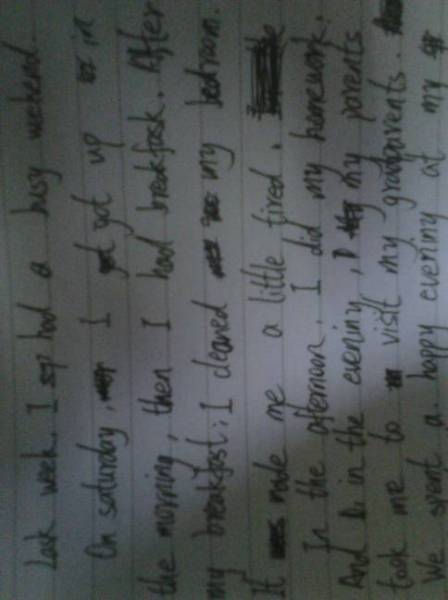 Last week. I had a busy weekend.
On saturday, I got up in
the morning, then I had breakfask. After
my breakfast, I cleaned my bedroom.
It made me a little tired.
In the afernoon, I did my homework.
And in the evening, my parents
took me to visit my grandparents.
We spent a happy evening at my